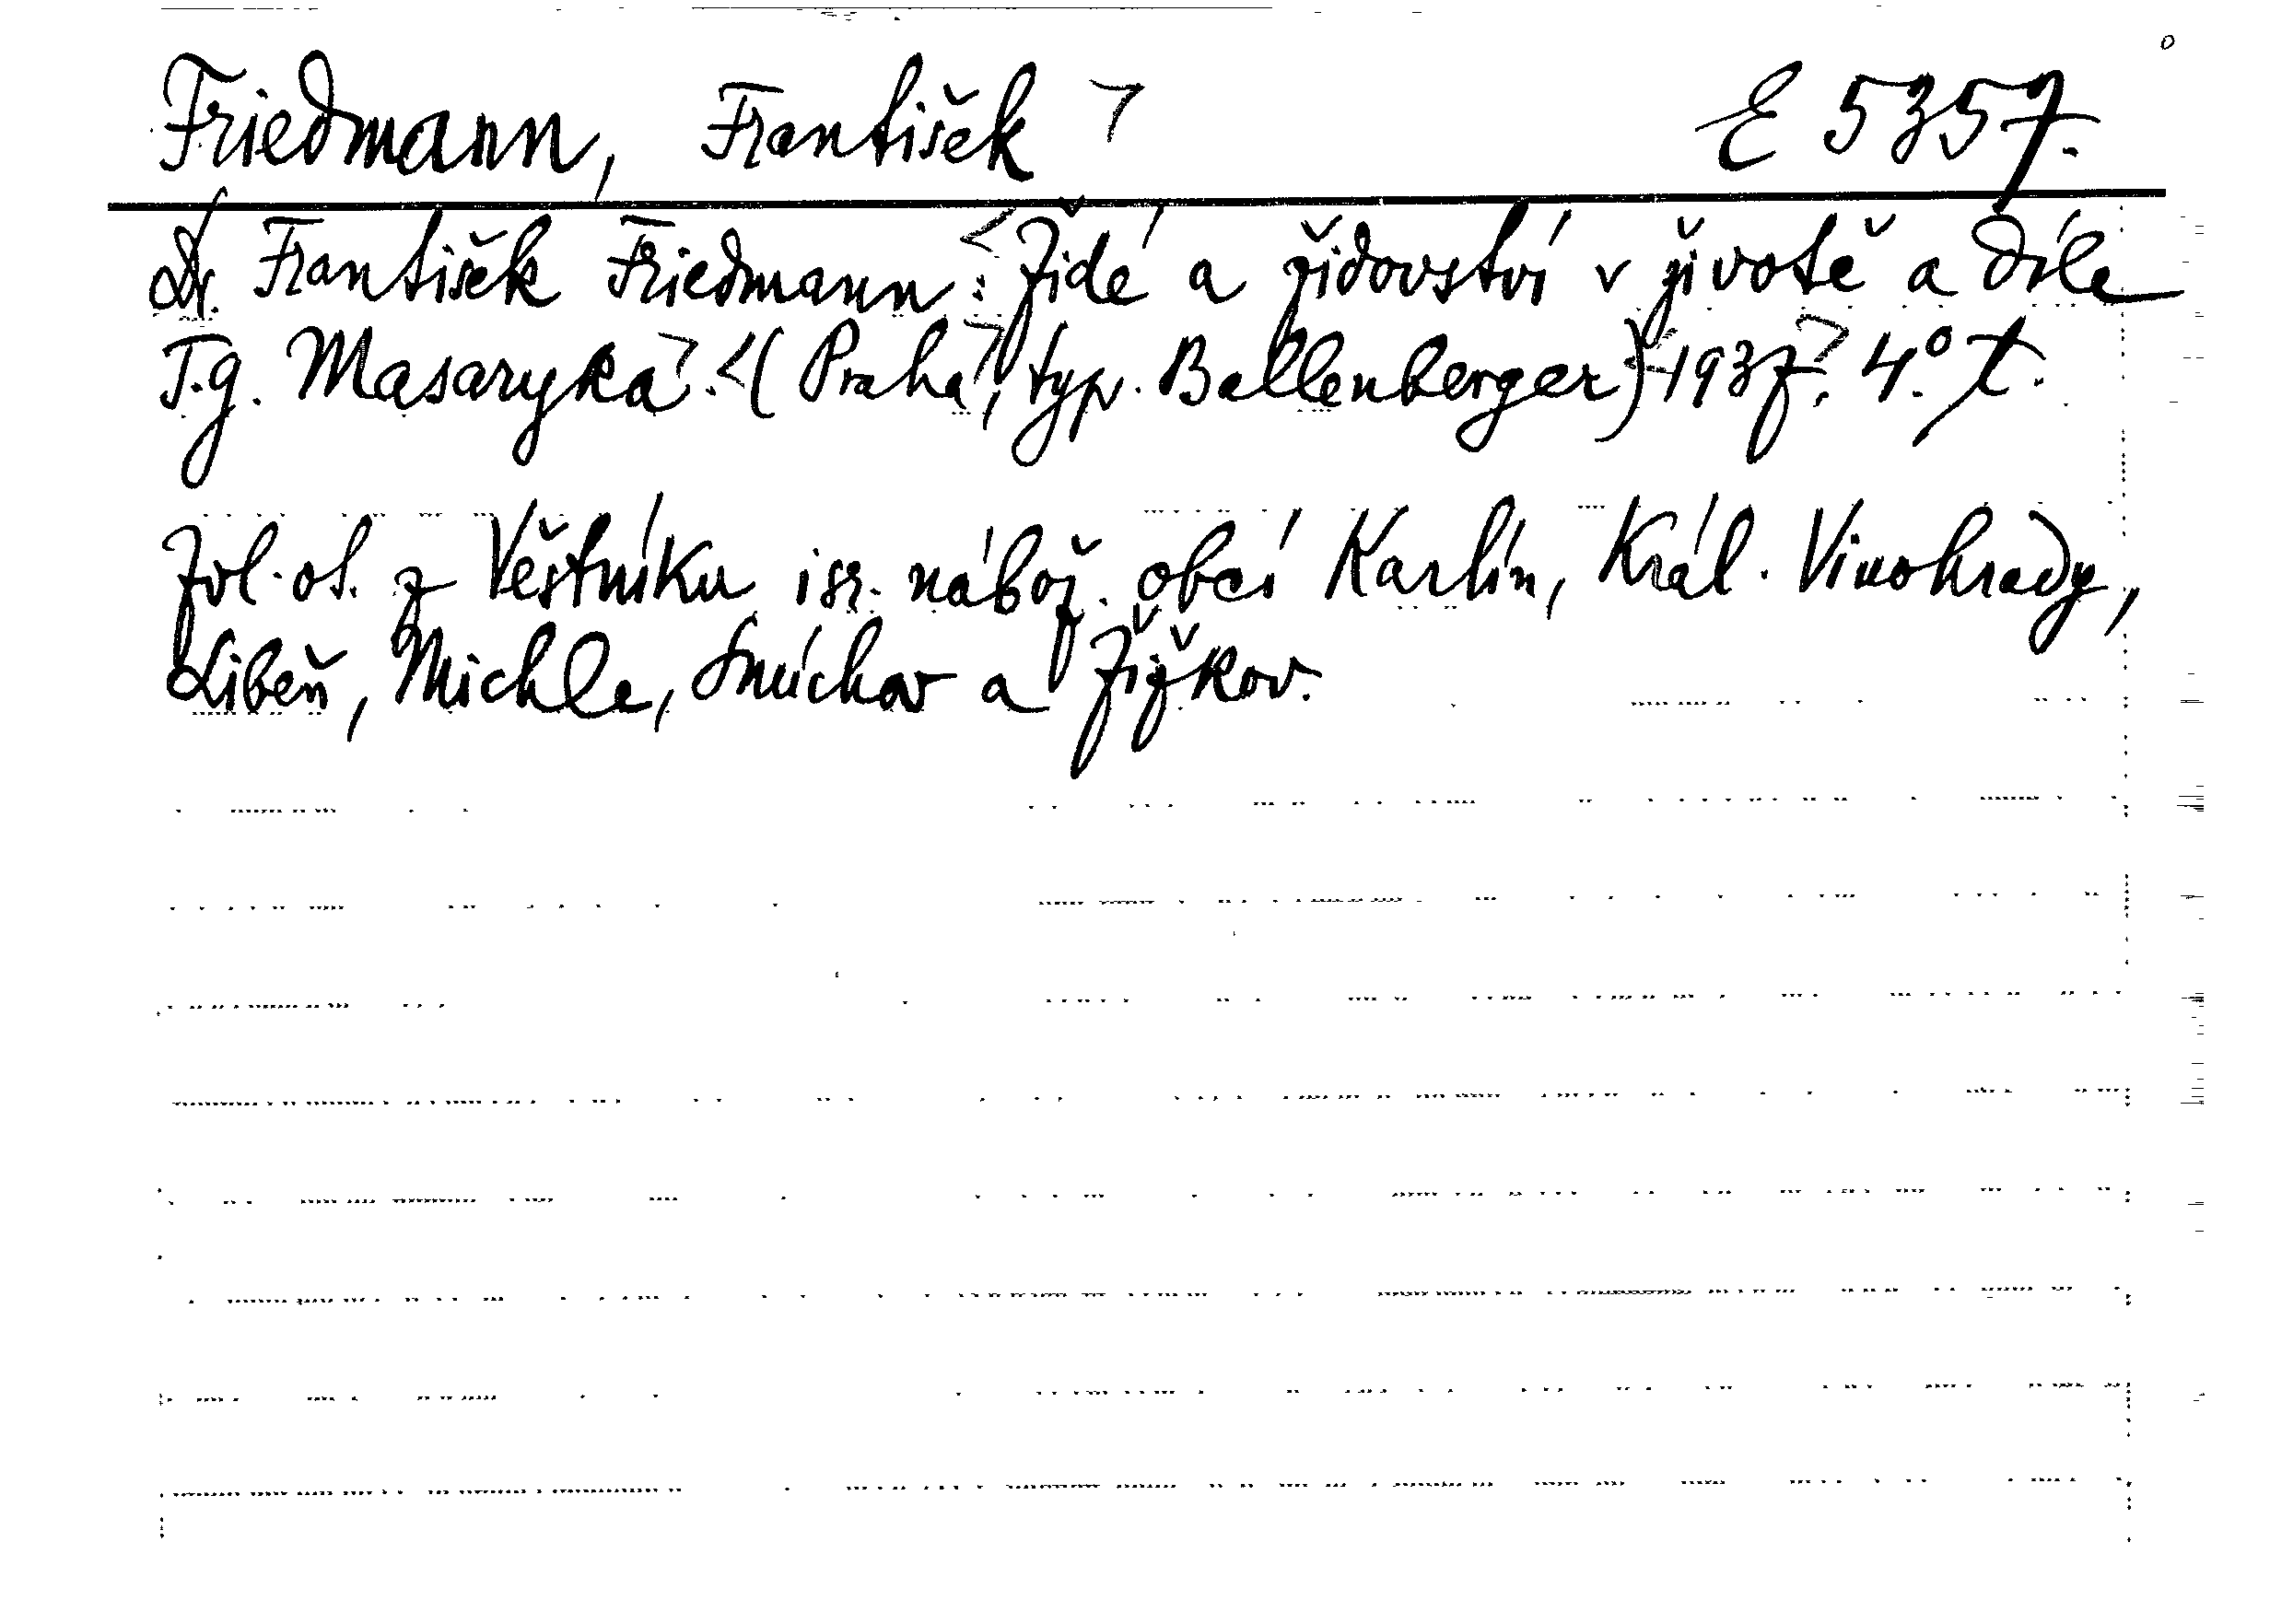 Friedmann, František E 5357.
Dr. František Friedmann: Židé a židovství v životě a díle
T.G. Masaryka. (Praha, typ. Ballenberger) 1937. 4.° t.
Zvl. ot. z Věstníku isr. nábož. obcí Karlín, Král. Vinohrady,
Libeň, Michle, Smíchov a Žižkov.